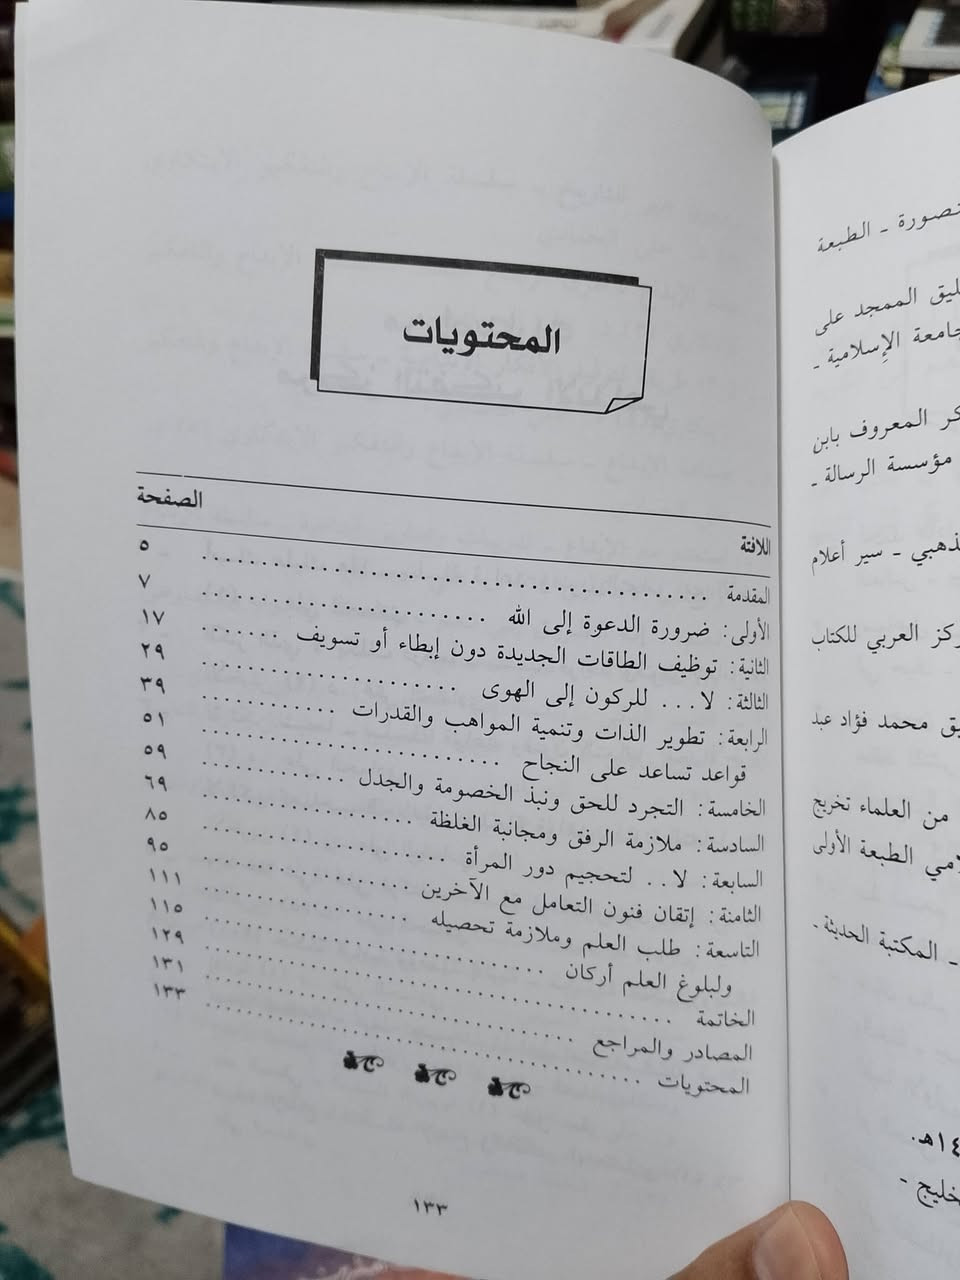 المحتويات
اللافتة الصفحة
المقدمة ٥
الأولى: ضرورة الدعوة إلى الله ٧
الثانية: توظيف الطاقات الجديدة دون إبطاء أو تسويف ١٧
الثالثة: لا... للركون إلى الهوى ٢٩
الرابعة: تطوير الذات وتنمية المواهب والقدرات ٣٩
قواعد تساعد على النجاح ٥١
الخامسة: التجرد للحق ونبذ الخصومة والجدل ٥٩
السادسة: ملازمة الرفق ومجانبة الغلظة ٦٩
السابعة: لا.. لتحجيم دور المرأة ٨٥
الثامنة: إتقان فنون التعامل مع الآخرين ٩٥
التاسعة: طلب العلم وملازمة تحصيله ١١١
ولبلوغ العلم أركان ١١٥
الخاتمة ١٢٩
المصادر والمراجع ١٣١
المحتويات ١٣٣
١٣٣
ـ الطبعة
الممجد على
الإسلامية ـ
المعروف بابن
مؤسسة الرسالة ـ
ـ سير أعلام
العربي للكتاب
محمد فؤاد عبد
من العلماء تخريج
الطبعة الأولى
ـ المكتبة الحديثة ـ